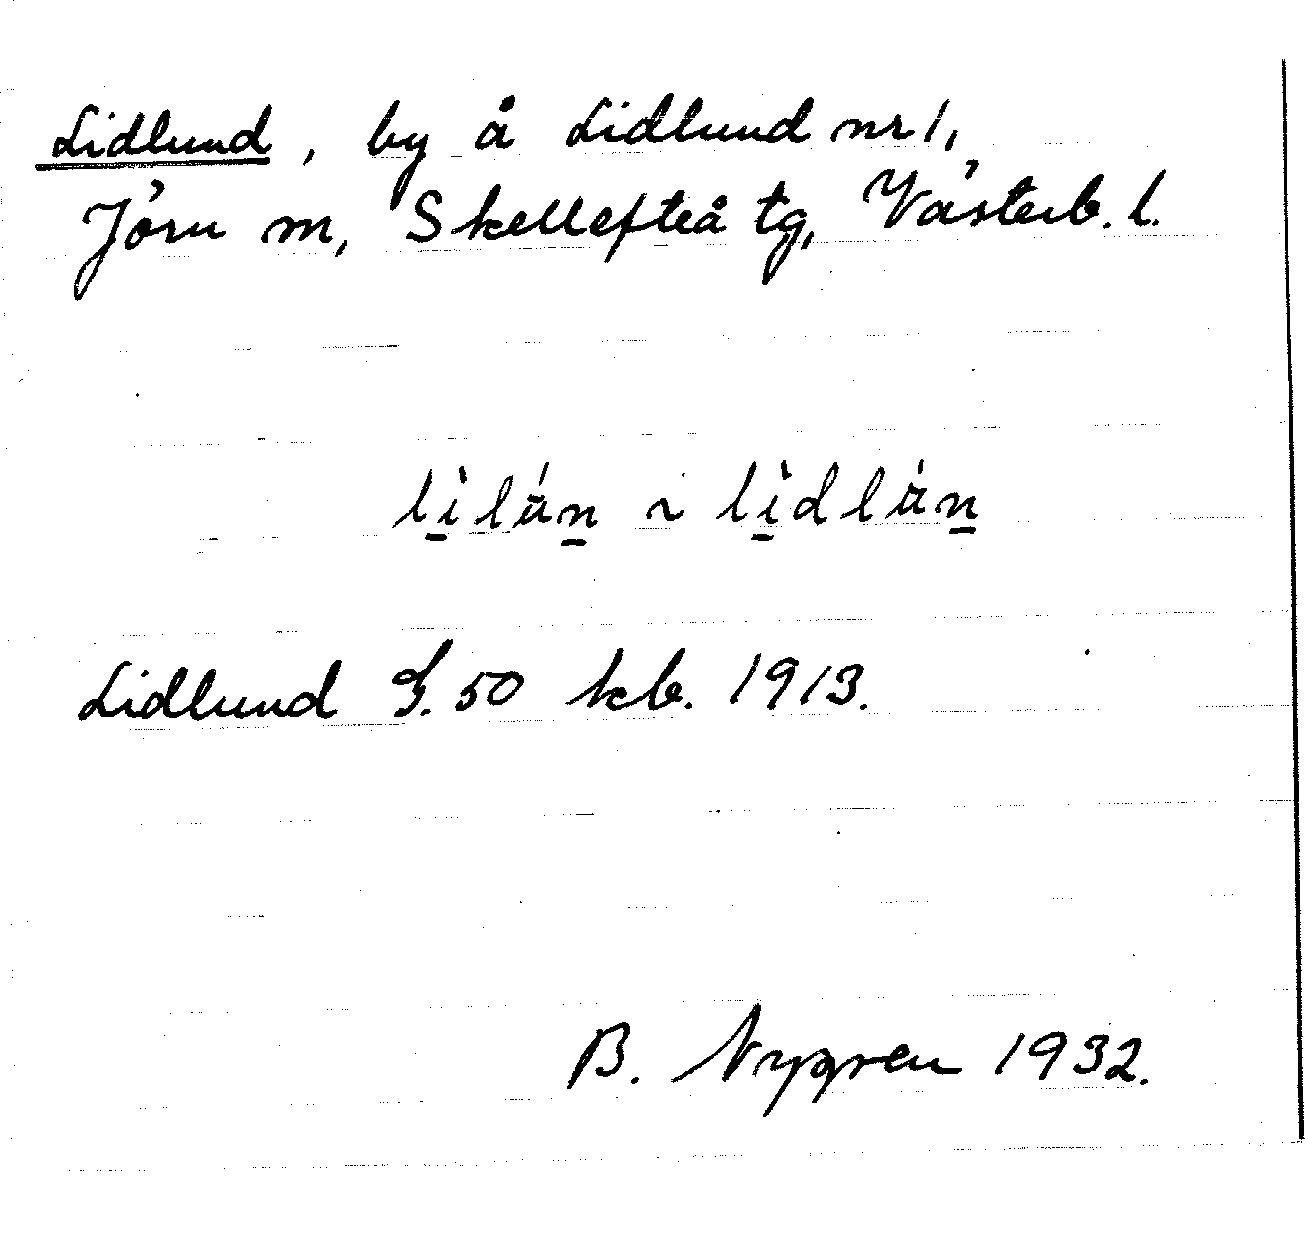 Lidlund, by å Lidlund nr 1,
Jörn m, Skellefteå tg, Västerb. l.
lìlán ~ lìdlán
Lidlund G. 50 kb. 1913.
B. Nygren 1932.